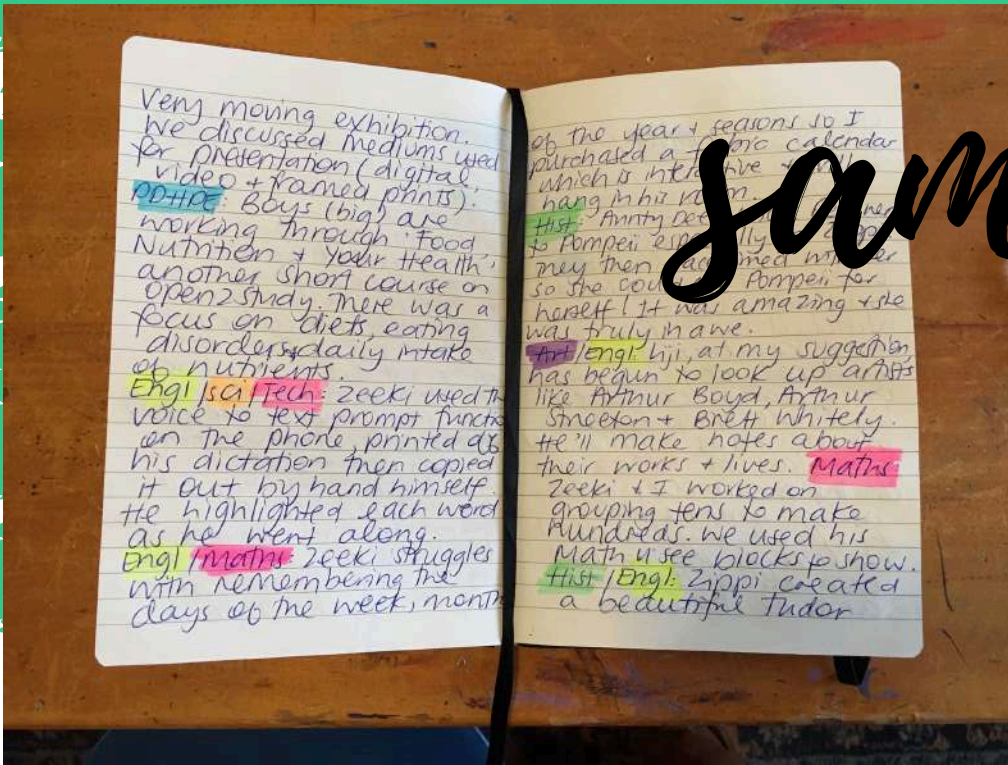 Very moving exhibition.
We discussed mediums used
for presentation (digital,
video + framed prints).
PDHPE: Boys (big) are
working through Food
Nutrition + Your Health,
another short course on
open2study. There was a
focus on diets, eating
disorders + daily intake
of nutrients.
Engl / Sci / Tech: Zeeki used th
voice to text prompt functio
on the phone, printed
his dictation then copied
it out by hand himself.
He highlighted each word
as he went along.
Engl / Maths: Zeeki struggles
with remembering the
days of the week, month
of the year + seasons so I
purchased a calendar
which is interactive
hang in his room.
Hist:
to Pompeii
They then
so she Pompeii for
herself! It was amazing + she
was truly in awe.
Art / Engl: Liji, at my suggestion,
has begun to look up artists
like Arthur Boyd, Arthur
Streeton + Brett Whitely.
He'll make notes about
their works + lives. Maths:
Zeeki + I worked on
grouping tens to make
hundreds. We used his
Math u see blocks to show.
Hist / Engl: Zippi created
a beautiful Tudor
sam